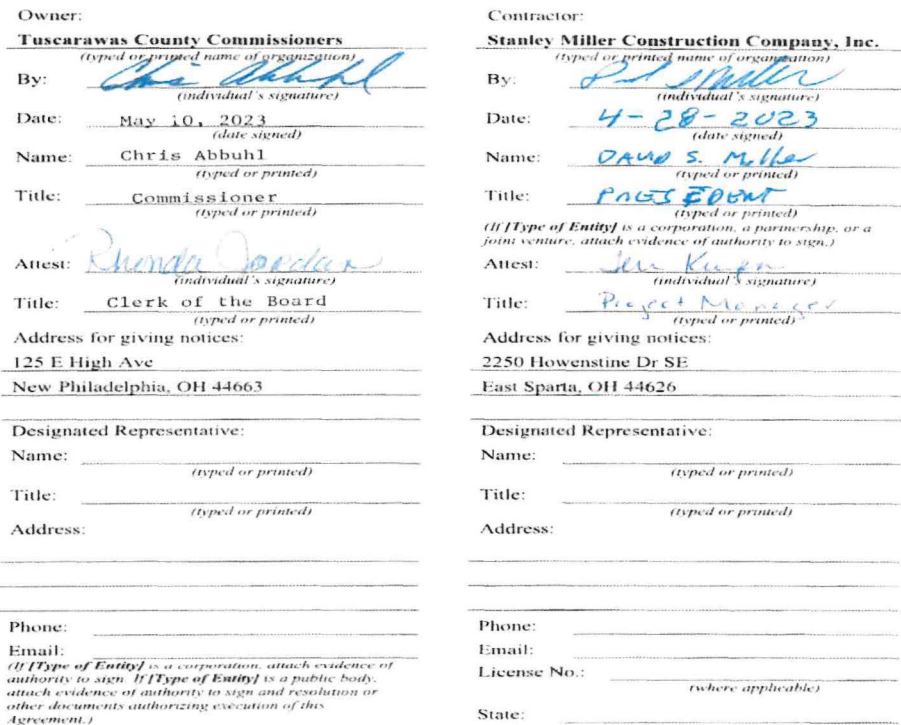 Owner:
Tuscarawas County Commissioners
(typed or printed name of organization)
By: Chris Abbuhl
(individual's signature)
Date: May 10, 2023
(date signed)
Name: Chris Abbuhl
(typed or printed)
Title: Commissioner
(typed or printed)
Attest: Rhonda Jordan
(individual's signature)
Title: Clerk of the Board
(typed or printed)
Address for giving notices:
125 E High Ave
New Philadelphia, OH 44663
Designated Representative:
Name:
(typed or printed)
Title:
(typed or printed)
Address:
Phone:
Email:
(If [Type of Entity] is a corporation, attach evidence of
authority to sign. If [Type of Entity] is a public body,
attach evidence of authority to sign and resolution or
other documents authorizing execution of this
Agreement.)
Contractor:
Stanley Miller Construction Company, Inc.
(typed or printed name of organization)
By: S Miller
(individual's signature)
Date: 4-28-2023
(date signed)
Name: DAVID S. Miller
(typed or printed)
Title: PRESIDENT
(typed or printed)
(If [Type of Entity] is a corporation, a partnership, or a
joint venture, attach evidence of authority to sign.)
Attest: Jen
(individual's signature)
Title: Project Manager
(typed or printed)
Address for giving notices:
2250 Howenstine Dr SE
East Sparta, OH 44626
Designated Representative:
Name:
(typed or printed)
Title:
(typed or printed)
Address:
Phone:
Email:
License No.:
(where applicable)
State: